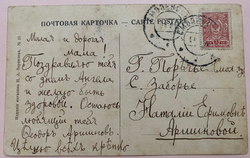 ПОЧТОВАЯ КАРТОЧКА — CARTE POSTALE
Милая и дорогая
мама!
Поздравляю тебя
со днем Ангела
и желаю быть
здоровы. Остаюсь
любящий тебя
Федоръ Аршиновъ.
Целую всех крепко
Г. Порѣчье
С. Заборье
Наталии Ефимовне
Аршиновой